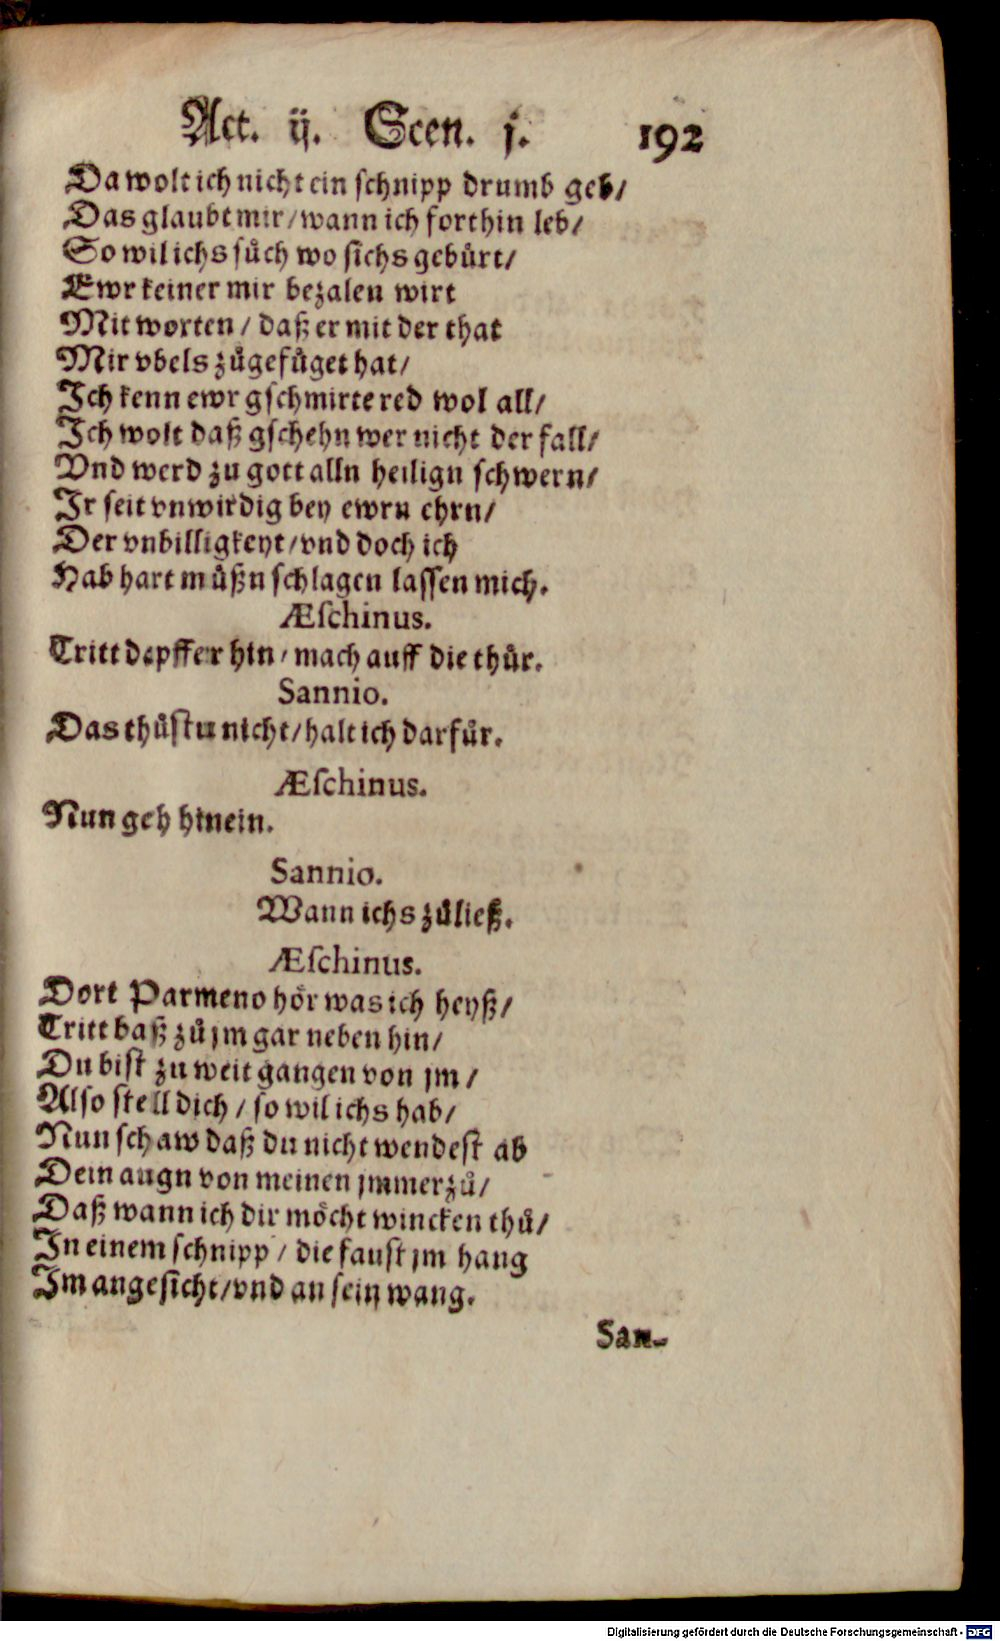 Act. ij. Scen. j. 192
Da wolt ich nicht ein schnipp drumb geb/
Das glaubt mir/ wann ich forthin leb/
So wil ichs sůch wo sichs gebůrt/
Ewr keiner mir bezalen wirt
Mit worten/ daß er mit der that
Mir vbels zůgefůget hat/
Ich kenn ewr gschmirte red wol all/
Ich wolt daß gschehn wer nicht der fall/
Vnd werd zu gott alln heilign schwern/
Ir seit vnwirdig bey ewrn ehrn/
Der vnbilligkeyt/ vnd doch ich
Hab hart můßn schlagen lassen mich.
Æſchinus.
Tritt dapffer hin/ mach auff die thůr.
Sannio.
Das thůstu nicht/ halt ich darfůr.
Æſchinus.
Nun geh hinein.
Sannio.
Wann ichs zůließ.
Æſchinus.
Dort Parmeno hör was ich heyß/
Tritt baß zů jm gar neben hin/
Du bist zu weit gangen von jm/
Also stell dich/ so wil ichs hab/
Nun schaw daß du nicht wendest ab
Dein augn von meinen jmmerzů/
Daß wann ich dir möcht wincken thů/
In einem schnipp/ die faust jm hang
Im angesicht/ vnd an sein wang.
San-
Digitalisierung gefördert durch die Deutsche Forschungsgemeinschaft - DFG